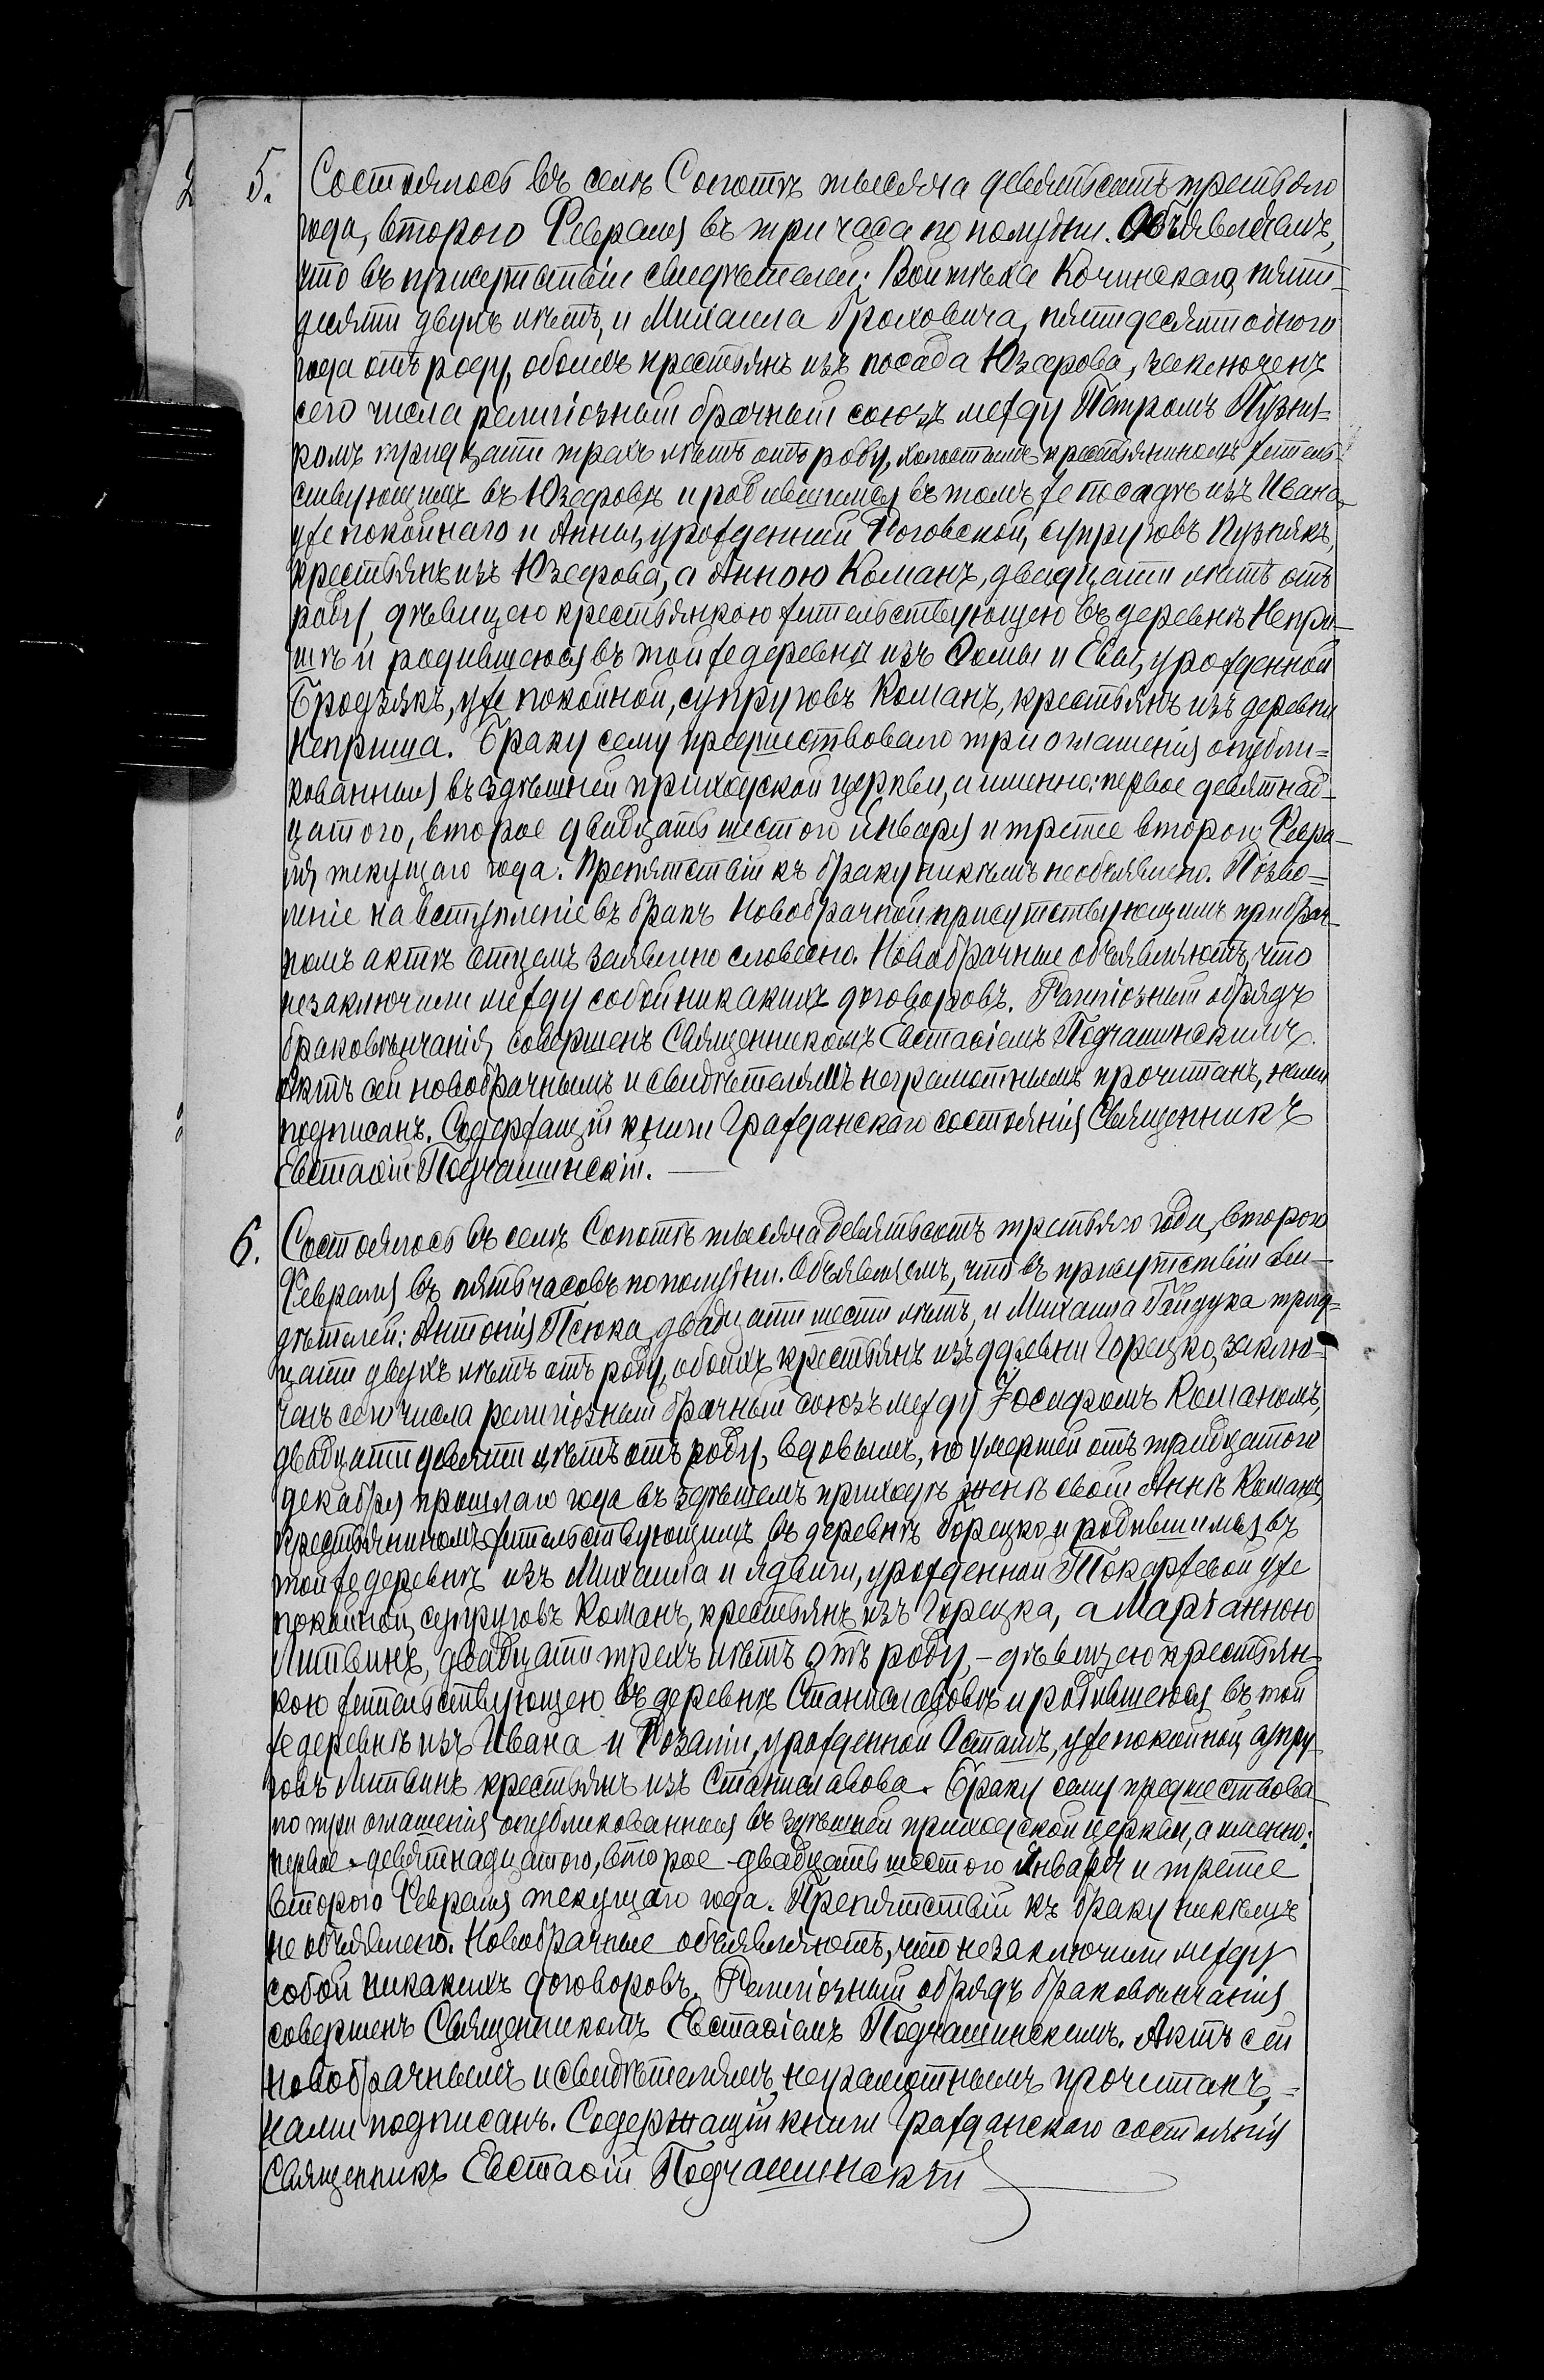 5. Состоялось въ селѣ Сопотѣ тысяча девятьсотъ третьяго
года, второго Февраля въ три часа по полудни. Объявляемъ,
что въ присутствіи свидѣтелей: Войтѣха Кочинскаго, пяти-
десяти двухъ лѣтъ, и Михаила Гроховича, пятидесяти одного
года отъ роду, обоихъ крестьянъ изъ посада Юзефова, заключенъ
сего числа религіозный брачный союзъ между Петромъ Пузня-
комъ тридцати трехъ лѣтъ отъ роду, холостымъ крестьяниномъ житель-
ствующимъ въ Юзефовѣ и родившимся въ томъ же посадѣ изъ Ивана
уже покойнаго и Анны, урожденной Роговской, супруговъ Пузнякъ,
крестьянъ изъ Юзефова, а Анною Команъ, двадцати лѣтъ отъ
роду, дѣвицею крестьянкою жительствующею въ деревнѣ Непри-
шѣ и родившеюся въ той же деревни изъ Ѳомы и Евы, урожденной
Бродзякъ, уже покойной, супруговъ Команъ, крестьянъ изъ деревни
Неприша. Браку сему предшествовало три оглашенія опубли-
кованныя въ здѣшней приходской церкви, а именно: первое девятнад-
цатого, второе двадцать шестого Января и третее второго Февра-
ля текущаго года. Препятствій къ браку никѣмъ необъявлено. Позво-
леніе на вступленіе въ бракъ Новобрачной присутствующимъ при брач-
номъ актѣ отцемъ заявлено словесно. Новобрачные объявляютъ, что
незаключили между собой никакихъ договоровъ. Религіозный обрядъ
браковѣнчанія совершенъ Священникомъ Евстафіемъ Подчашинскимъ.
Актъ сей новобрачнымъ и свидѣтелямъ неграмотнымъ прочитанъ, нами
подписанъ. Содержащій книги Гражданскаго состоянія Священникъ
Евстафій Подчашинскій.
6. Состоялось въ селѣ Сопотѣ тысяча девятьсотъ третьяго года, второго
Февраля въ пять часовъ по полудни. Объявляемъ, что въ присутствіи сви-
дѣтелей: Антонія Псюка, двадцати шести лѣтъ, и Михаила Гайдука трид-
цати двухъ лѣтъ отъ роду, обоихъ крестьянъ изъ деревни Горецко, заклю-
ченъ сего числа религіозный брачный союзъ между Іосифомъ Команомъ,
двадцати девяти лѣтъ отъ роду, вдовымъ, по умершей отъ тридцатого
декабря прошлаго года въ здѣшемъ приходѣ женѣ своей Аннѣ Команъ,
крестьяниномъ жительствующимъ въ деревнѣ Горецко и родившимся въ
той же деревнѣ изъ Михаила и Ядвиги, урожденной Токаржевой уже
покойной, супруговъ Команъ, крестьянъ изъ Горецка, а Маріанною
Литвинъ, двадцати трехъ лѣтъ отъ роду, – дѣвицею крестьян-
кою жительствующею въ деревнѣ Станиславовѣ и родившеюся въ той
же деревнѣ изъ Ивана и Розаліи, урожденной Осташъ, уже покойной, супру-
говъ Литвинъ крестьянъ изъ Станиславова. Браку сему предшествова-
ло три оглашенія опубликованныя въ здѣшней приходской церкви, а именно:
первое – девятнадцатого, второе – двадцать шестого Января и третее
второго Февраля текущаго года. Препятствій къ браку никѣмъ
не объявлено. Новобрачные объявляютъ, что незаключили между
собой никакихъ договоровъ. Религіозный обрядъ браковѣнчанія
совершенъ Священникомъ Евстафіемъ Подчашинскимъ. Актъ сей
новобрачнымъ и свидѣтелямъ неграмотнымъ прочитанъ, =
нами подписанъ. Содержащій книги Гражданскаго состоянія
Священникъ Евстафій Подчашинскій